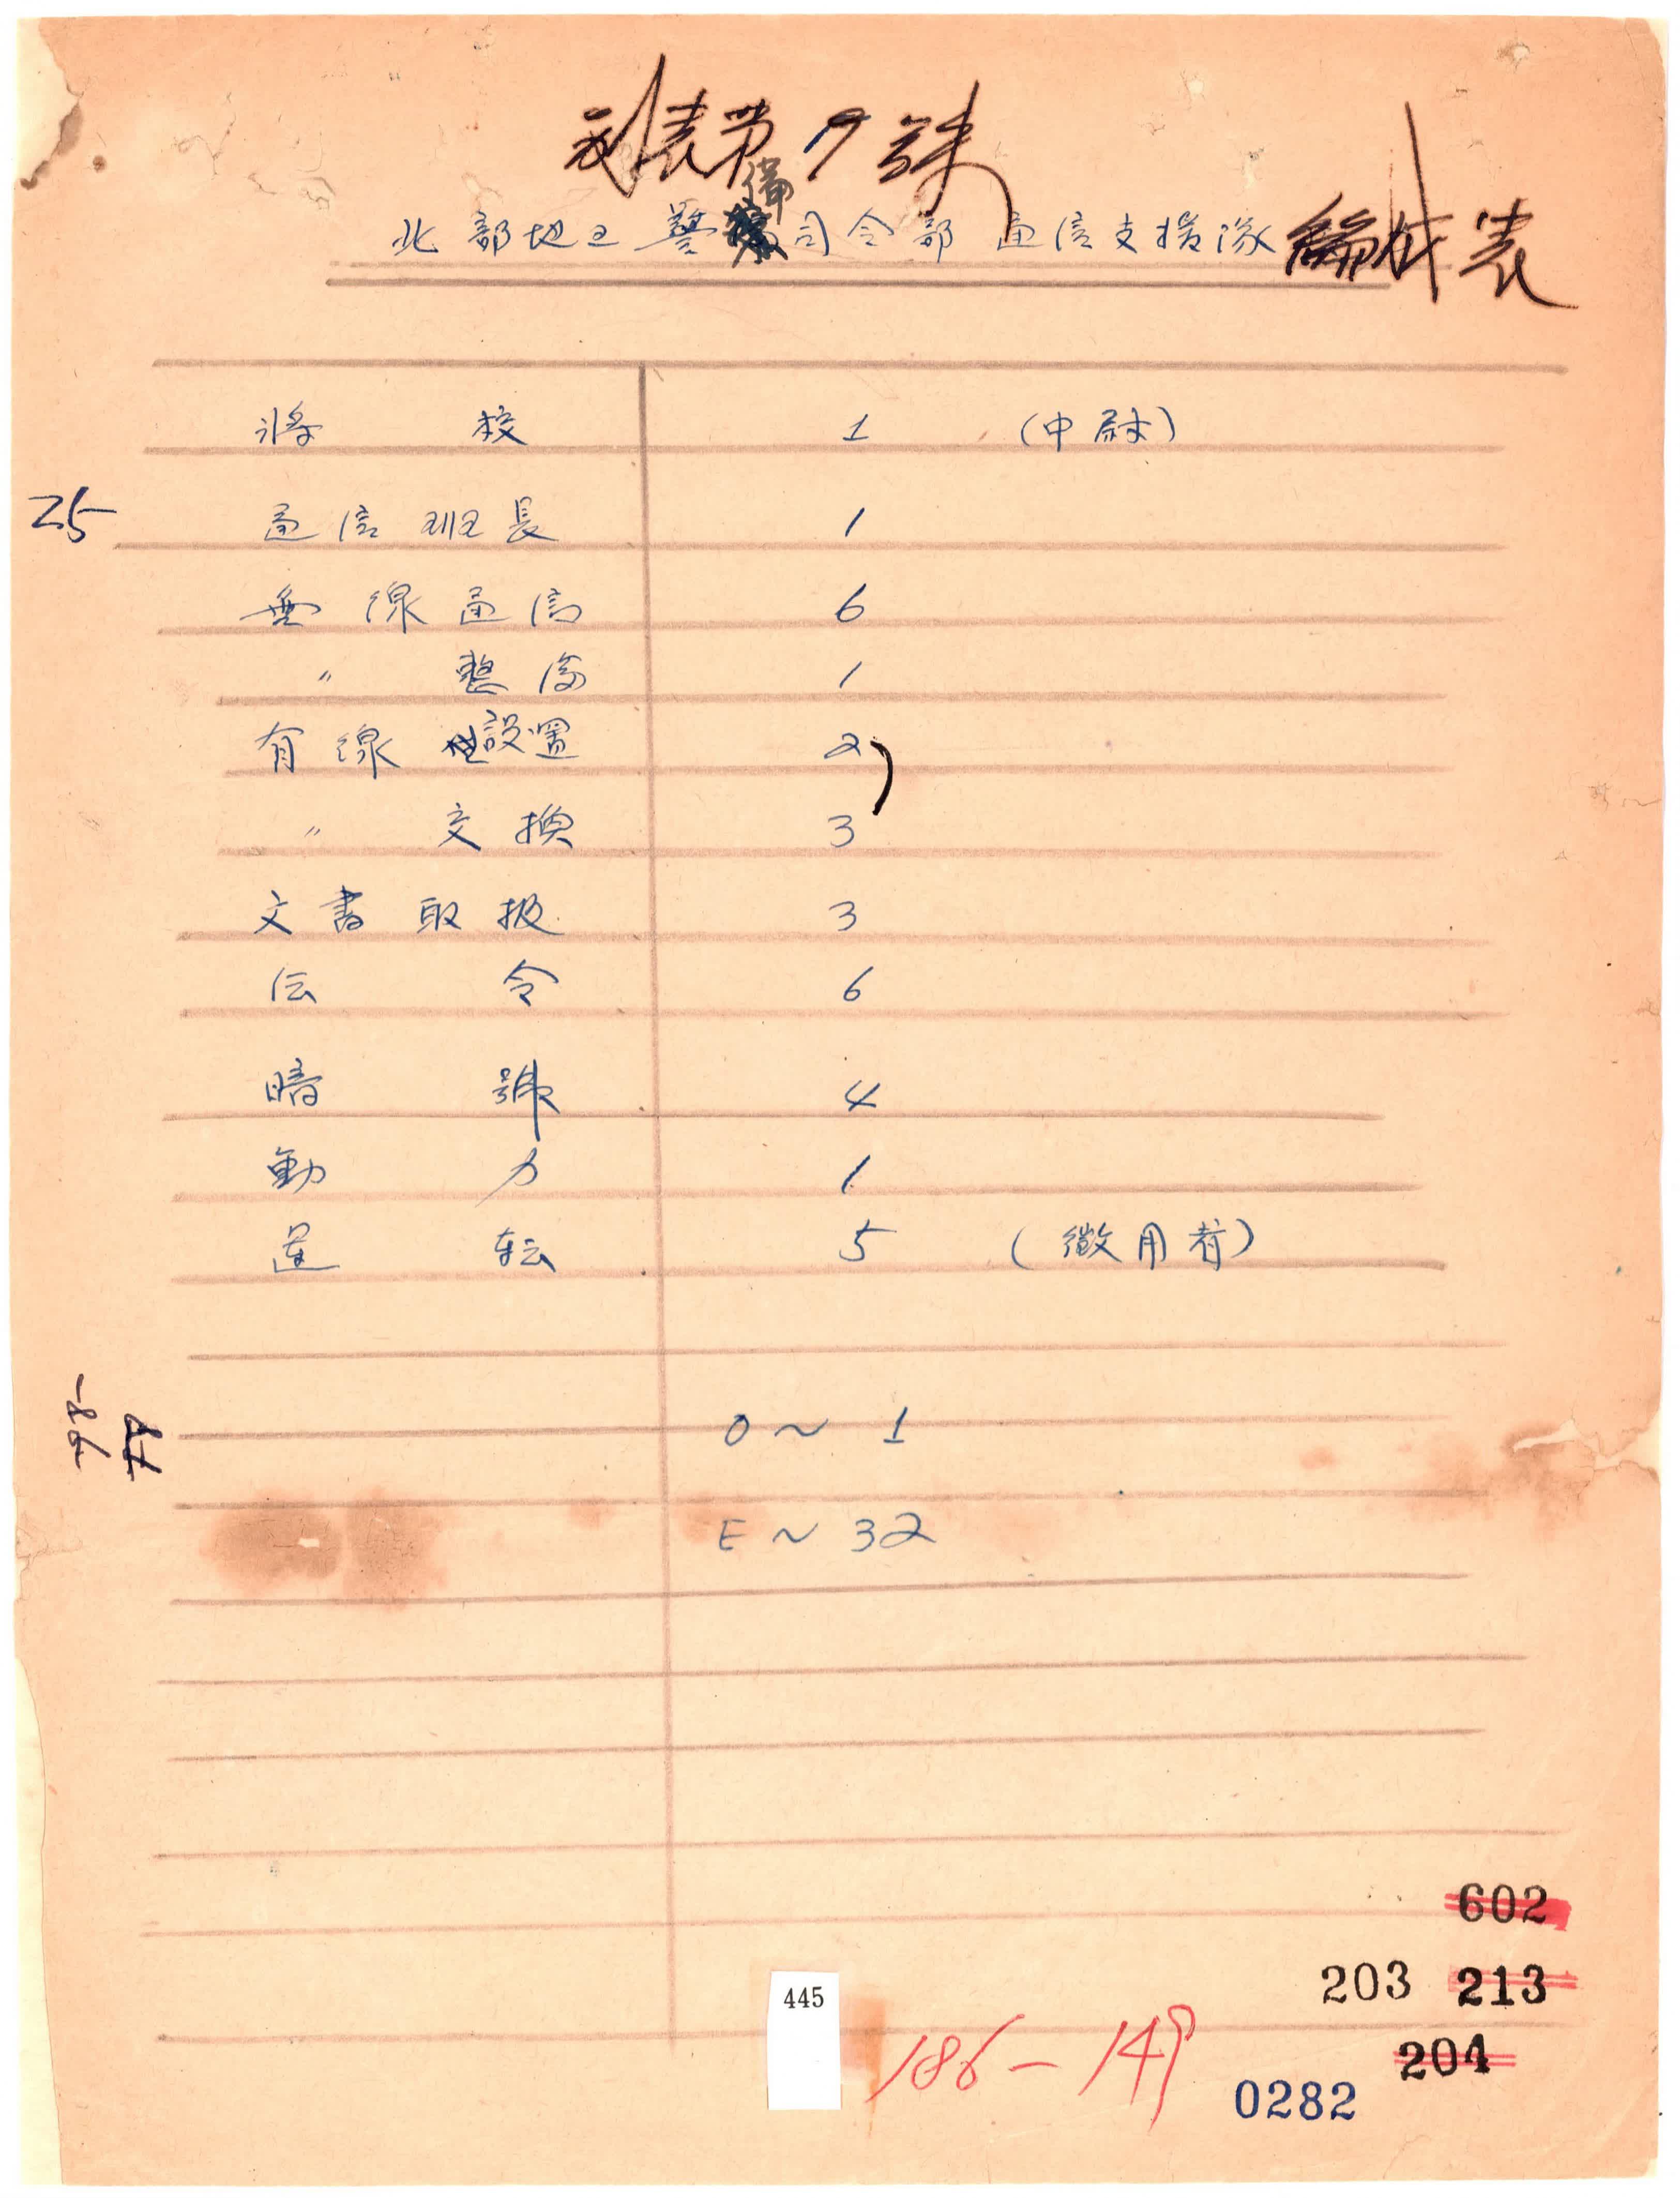 別表第9號
備
北部地区警司令部通信支援隊編成表
将校 1 (中尉)
25
通信班長 1
無線通信 6
〃 整備 1
有線 設置 2
〃 交換 3
文書取扱 3
伝令 6
暗號 4
動力 1
運転 5 (徴用者)
O~1
E~32
602
203 213
445
204
186-149
0282